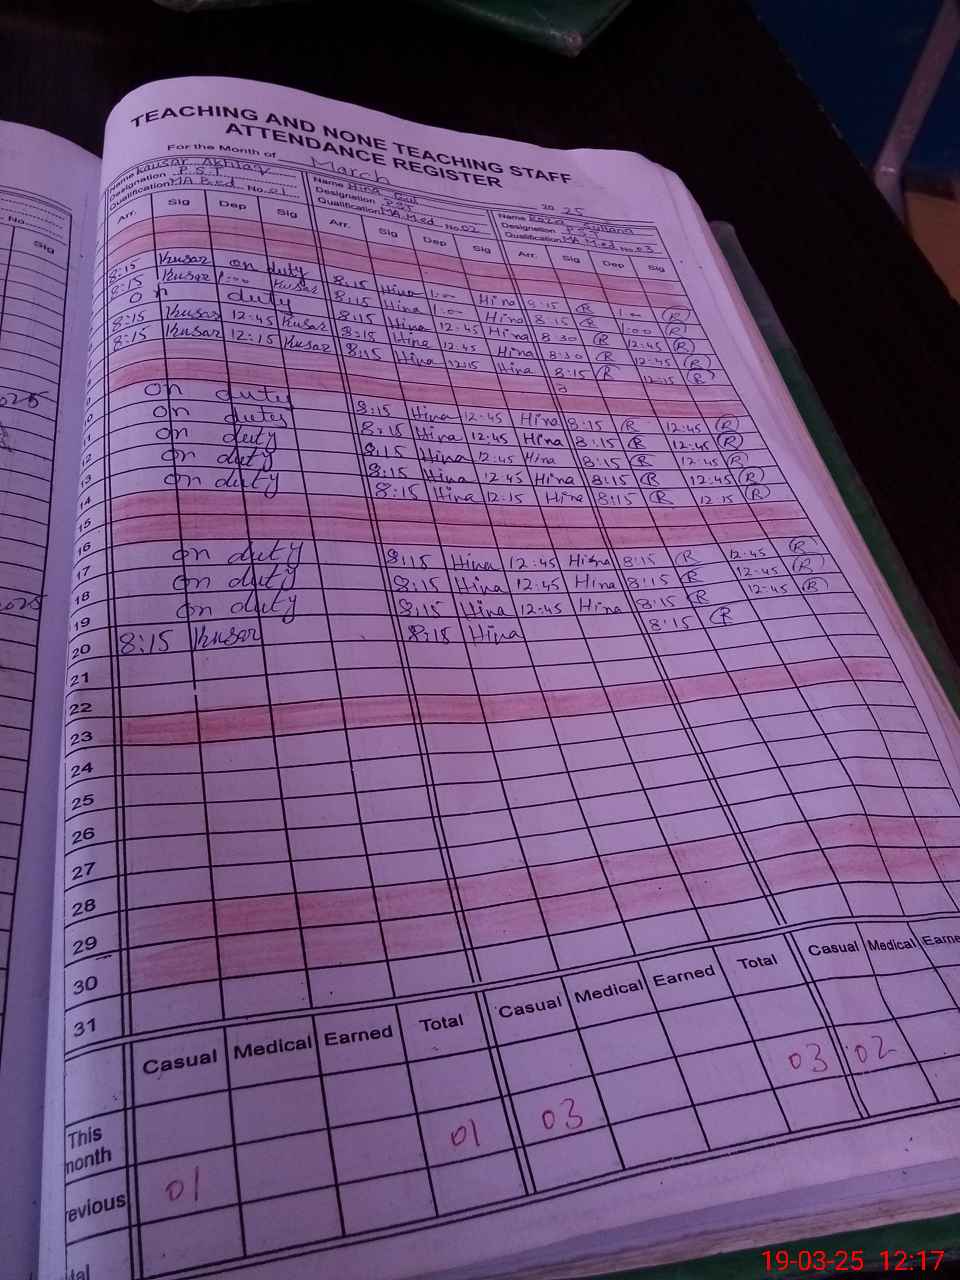 No.
Sig
2025
2025
TEACHING AND NONE TEACHING STAFF
ATTENDANCE REGISTER
For the Month of March 2025
Name Kausar Akhtar
Designation P.S.T
Qualification MA.B.ed No.01
Name Hina
Designation PST
Qualification MA.M.ed No.02
Name Sultana
Designation
Qualification MA M.ed No.03
Arr. Sig Dep Sig Arr. Sig Dep Sig Arr. Sig Dep Sig
8:15 Kusar on duty 8:15 Hina 1:00 Hina 8:15 R 1:00 R
8:15 Kusar 1:00 Kusar 8:15 Hina 1:00 Hina 8:15 R 1:00 R
on duty 8:15 Hina 12:45 Hina 8:30 R 12:45 R
8:15 Kusar 12:45 Kusar 8:15 Hina 12:45 Hina 8:30 R 12:45 R
8:15 Kusar 12:15 Kusar 8:15 Hina 12:15 Hina 8:15 R 12:15 R
9
10 on duty 8:15 Hina 12:45 Hina 8:15 R 12:45 R
11 on duty 8:15 Hina 12:45 Hina 8:15 R 12:45 R
12 on duty 8:15 Hina 12:45 Hina 8:15 R 12:45 R
13 on duty 8:15 Hina 12:45 Hina 8:15 R 12:45 R
14 on duty 8:15 Hina 12:15 Hina 8:15 R 12:15 R
15
16
17 on duty 8:15 Hina 12:45 Hina 8:15 R 12:45 R
18 on duty 8:15 Hina 12:45 Hina 8:15 R 12:45 R
19 on duty 8:15 Hina 12:45 Hina 8:15 R 12:45 R
20 8:15 Kusar 8:15 Hina 8:15 R
21
22
23
24
25
26
27
28
29
30
31
Casual Medical Earned Total Casual Medical Earned Total Casual Medical Earne
This month
evious 01 01 03 03 02
tal
19-03-25 12:17